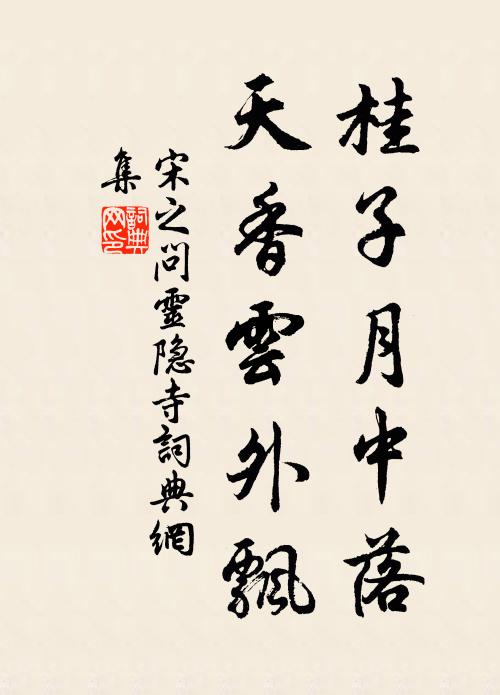 桂子月中落
天香雲外飄
宋之问靈隐寺詞典網
集
詞典网印